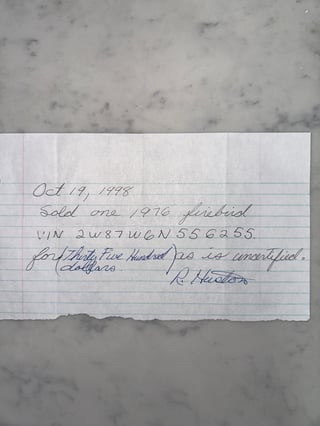 Oct 19, 1998
Sold one 1976 firebird
VIN 2W87W6N556255
for (Thirty Five Hundred dollars) as is uncertified.
R. Huston